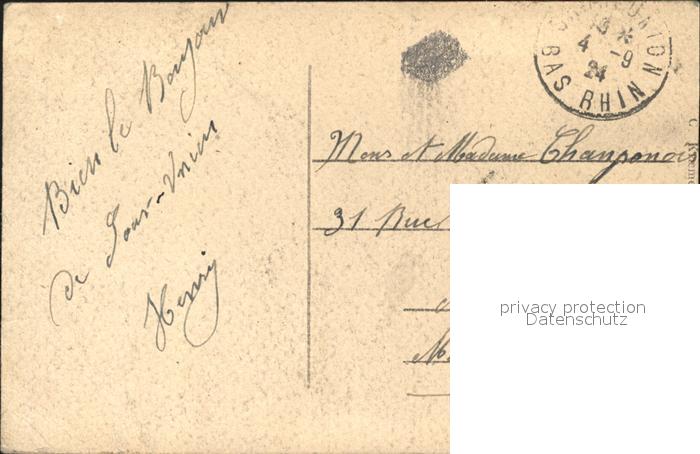 Bien le Bonjour
de Sarr-Union
Henri
UNION
4 -9
24
BAS RHIN
Mons et Madame Chanponois
31 Rue
privacy protection
Datenschutz